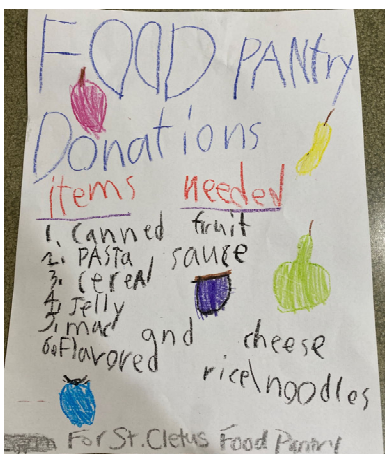 FOOD PANtry
Donations
items needed
1. Canned fruit
2. PASTA sauce
3. cereal
4. Jelly
5. mac and cheese
6. Flavored rice\noodles
For St. Cletus Food Pantry